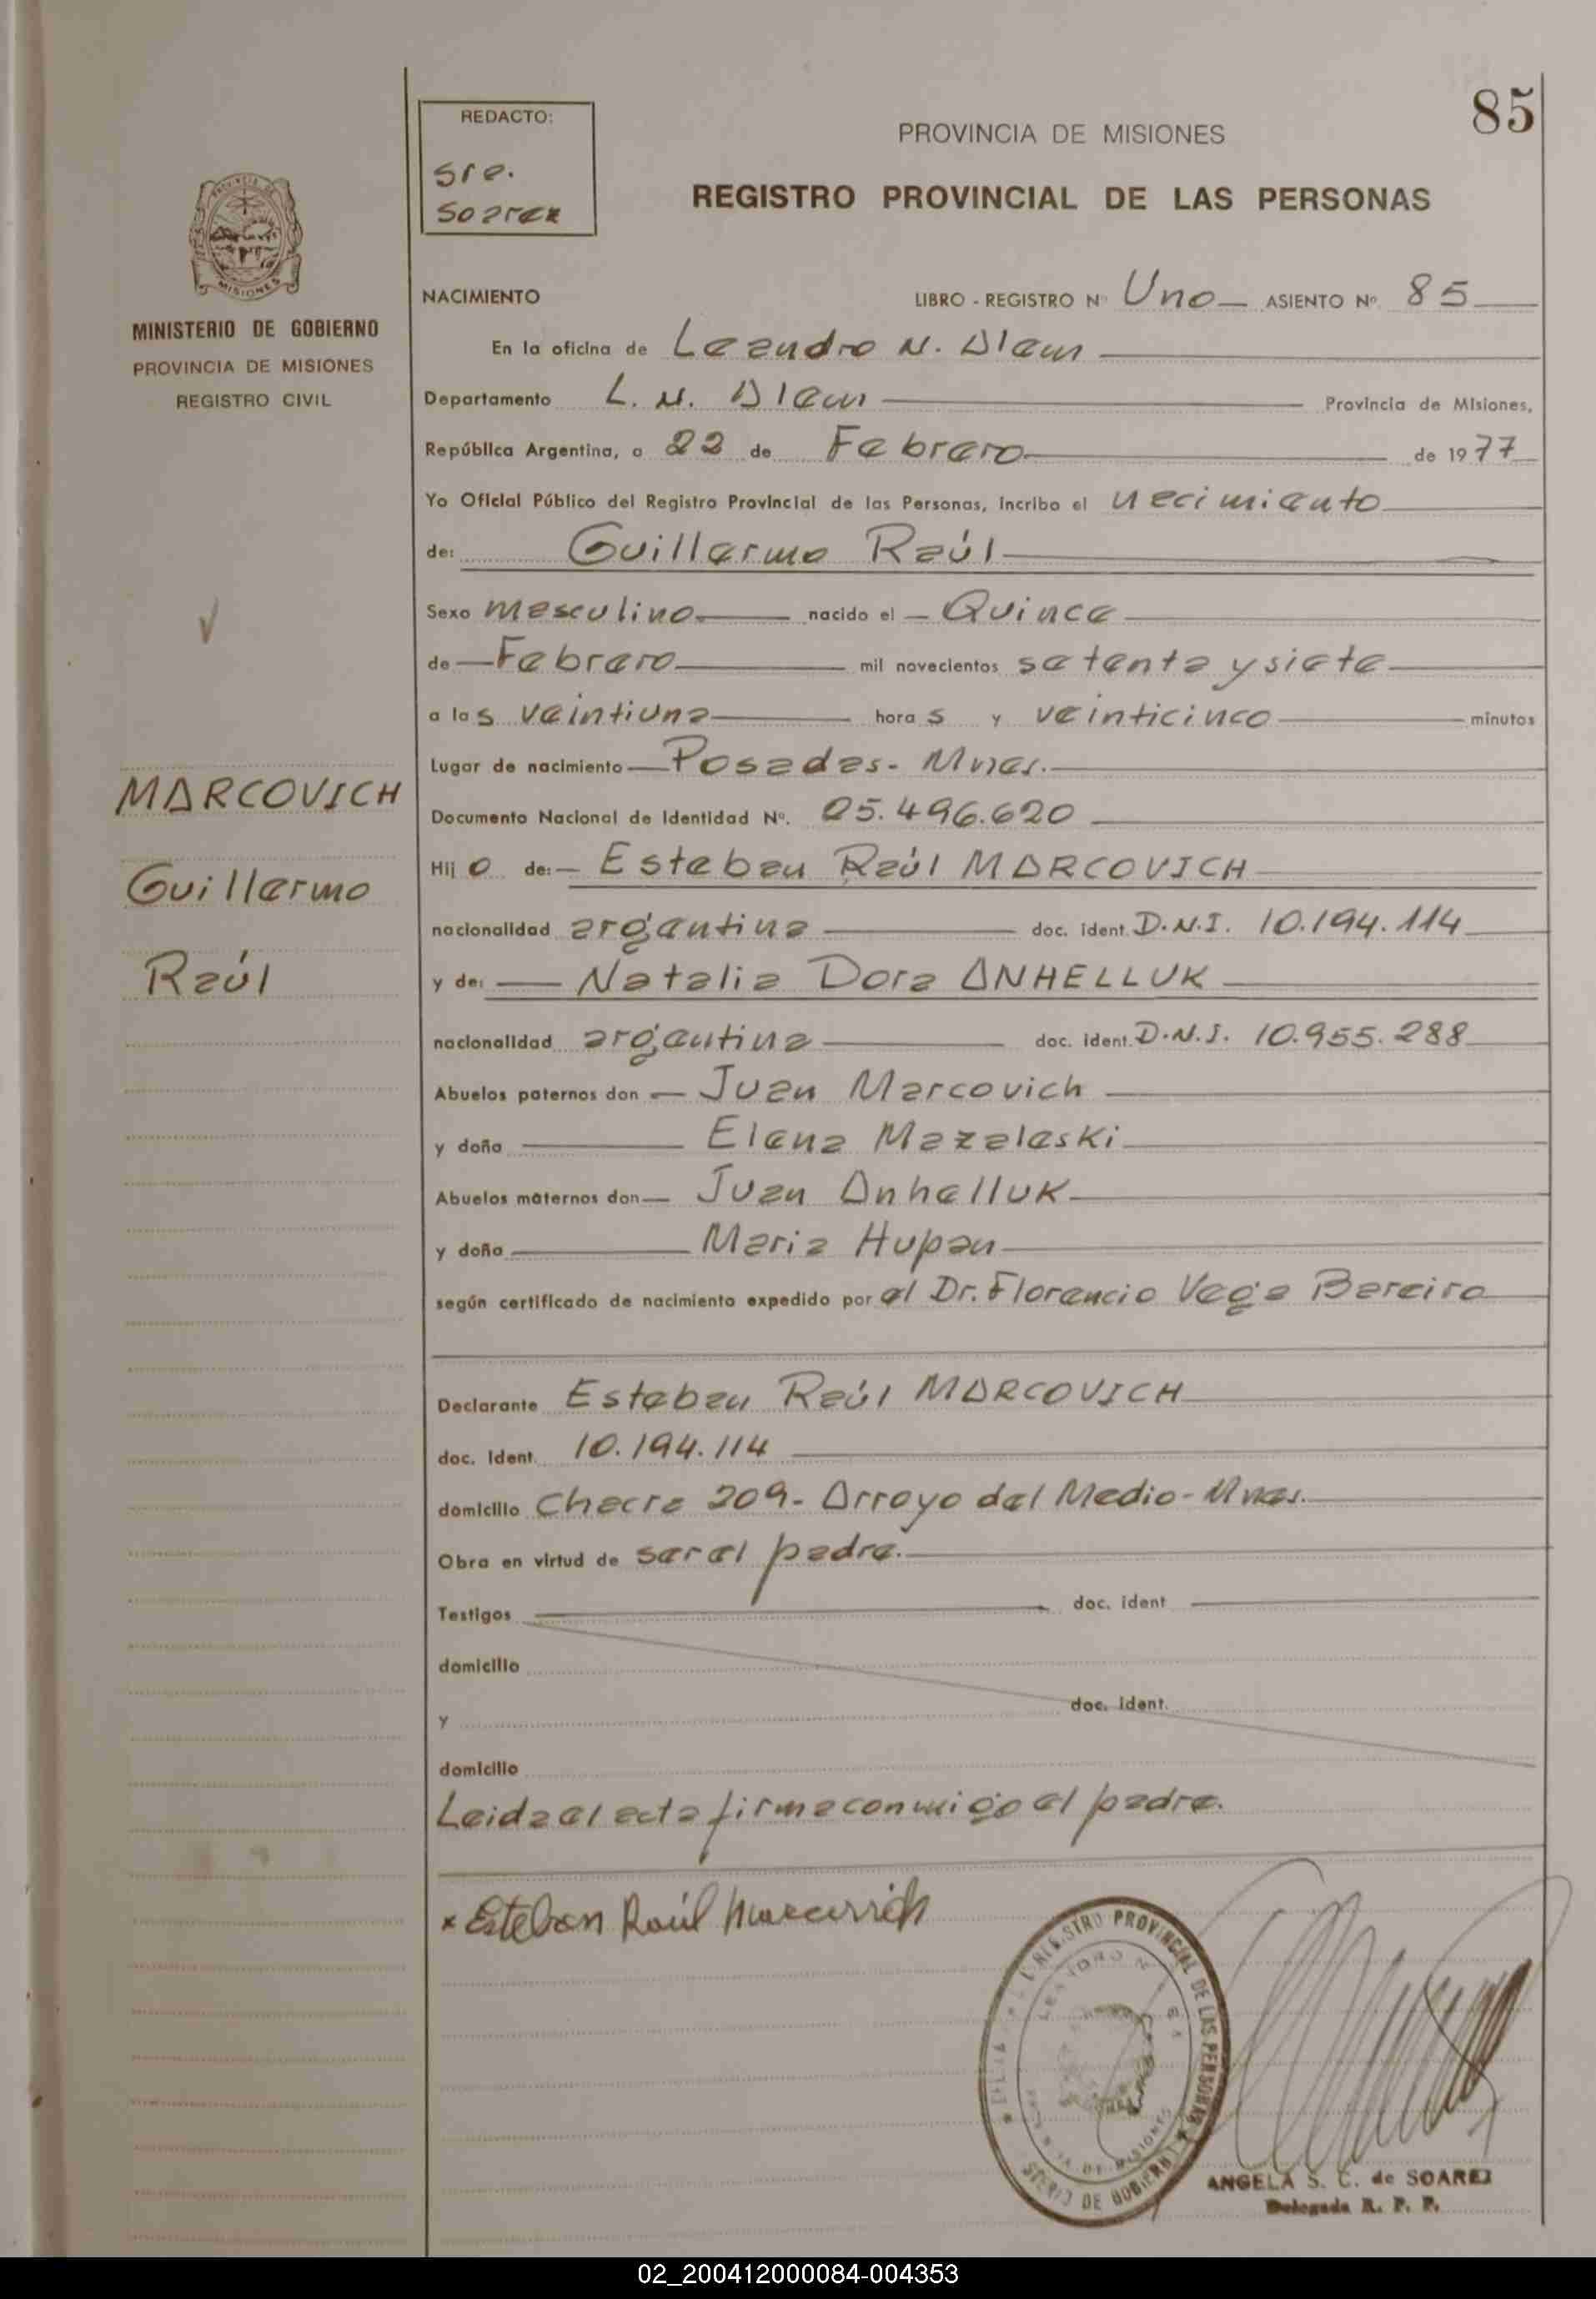 85
REDACTO:
Sra.
Soarez
PROVINCIA DE MISIONES
REGISTRO PROVINCIAL DE LAS PERSONAS
MISIONES
MINISTERIO DE GOBIERNO
PROVINCIA DE MISIONES
REGISTRO CIVIL
NACIMIENTO LIBRO - REGISTRO Nº Uno ASIENTO Nº 85
En la oficina de Leandro N. Alem
Departamento L. N. Alem Provincia de Misiones,
República Argentina, a 22 de Febrero de 1977
Yo Oficial Público del Registro Provincial de las Personas, incribo el nacimiento
de: Guillermo Raúl
Sexo masculino nacido el Quince
de Febrero mil novecientos setenta y siete
a las veintiuna horas y veinticinco minutos
Lugar de nacimiento Posadas - Mnes.
Documento Nacional de Identidad Nº. 25.496.620
Hijo de: Esteban Raúl MARCOVICH
nacionalidad argentina doc. ident. D.N.I. 10.194.114
y de: Natalia Dora ANHELLUK
nacionalidad argentina doc. ident. D.N.I. 10.955.288
Abuelos paternos don Juan Marcovich
y doña Elena Mazaleski
Abuelos maternos don Juan Anhelluk
y doña Maria Hupan
según certificado de nacimiento expedido por el Dr. Florencio Vega Bareiro
Declarante Esteban Raúl MARCOVICH
doc. Ident. 10.194.114
domicilio Chacra 209 - Arroyo del Medio - Mnes.
Obra en virtud de ser el padre.
Testigos doc. ident
domicilio
y doc. ident.
domicilio
Leida el acta firma conmigo el padre.
MARCOVICH
Guillermo
Raúl
x Esteban Raúl Marcovich
REGISTRO PROVINCIAL DE LAS PERSONAS
DE MISIONES
DE GOBIERNO
ANGELA S. C. de SOAREZ
Delegada R. P. P.
02_200412000084-004353